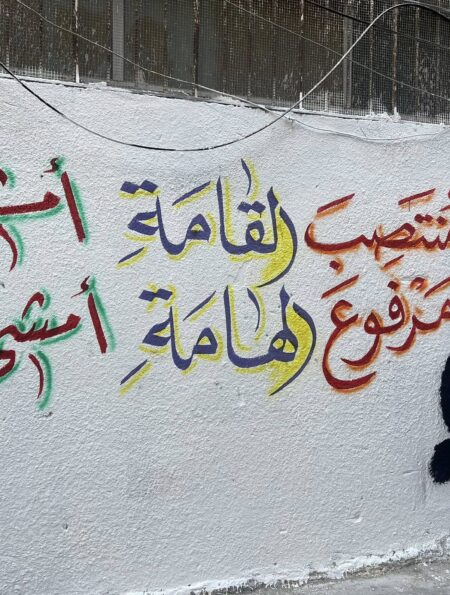 منتصبَ القامةِ أمشي
مرفوعَ الهامةِ أمشي